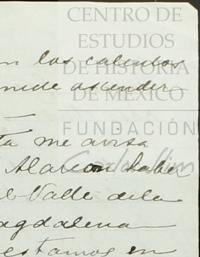 CENTRO DE
ESTUDIOS
DE HISTORIA
DE MEXICO
FUNDACIÓN
n los calculos
puede ascender
ta me avisa
Alarcon sabe
el Valle de la
agdalena
estamos en